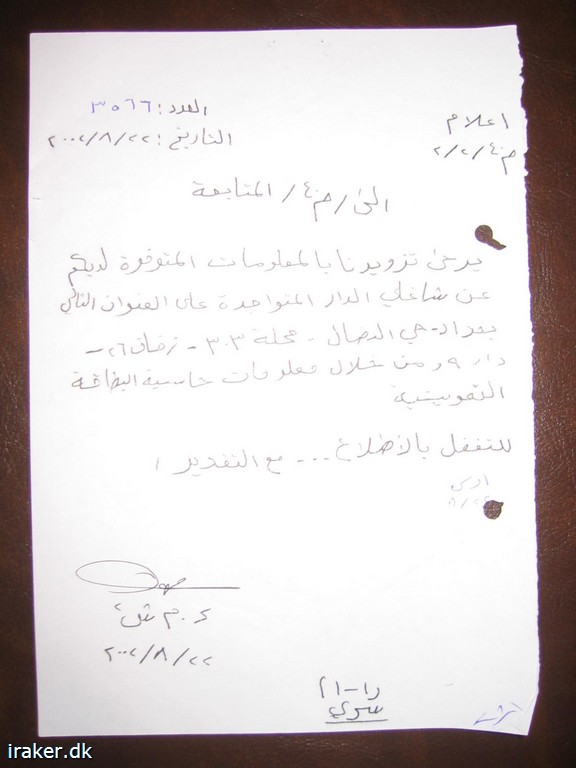 العدد: ٣٥٦٦
اعلام
التاريخ: ٢٠٠٢/٨/٢٢
م٤/٢/٢
الى/ م٤/ المتابعة
يرجى تزويدنا بالمعلومات المتوفرة لديكم
عن شاغلي الدار المتواجدة على العنوان التالي
بغداد - حي النضال - محلة ٣٠٣ - زقاق ٢٦ -
دار ٩ ومن خلال معلومات حاسبة البطاقة
التموينية
للتفضل بالاطلاع ... مع التقدير
٢٠٠٢/٨/٢٢
سري
iraker.dk